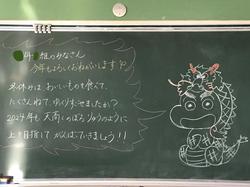 4年 組のみなさん
今年もよろしくおねがいします！？
冬休みは おいしいものを食べて、
たくさんねて、ゆっくりできましたか？
2024年も 天高くのぼる りゅうのように
上を目指して がんばっていきましょう！！